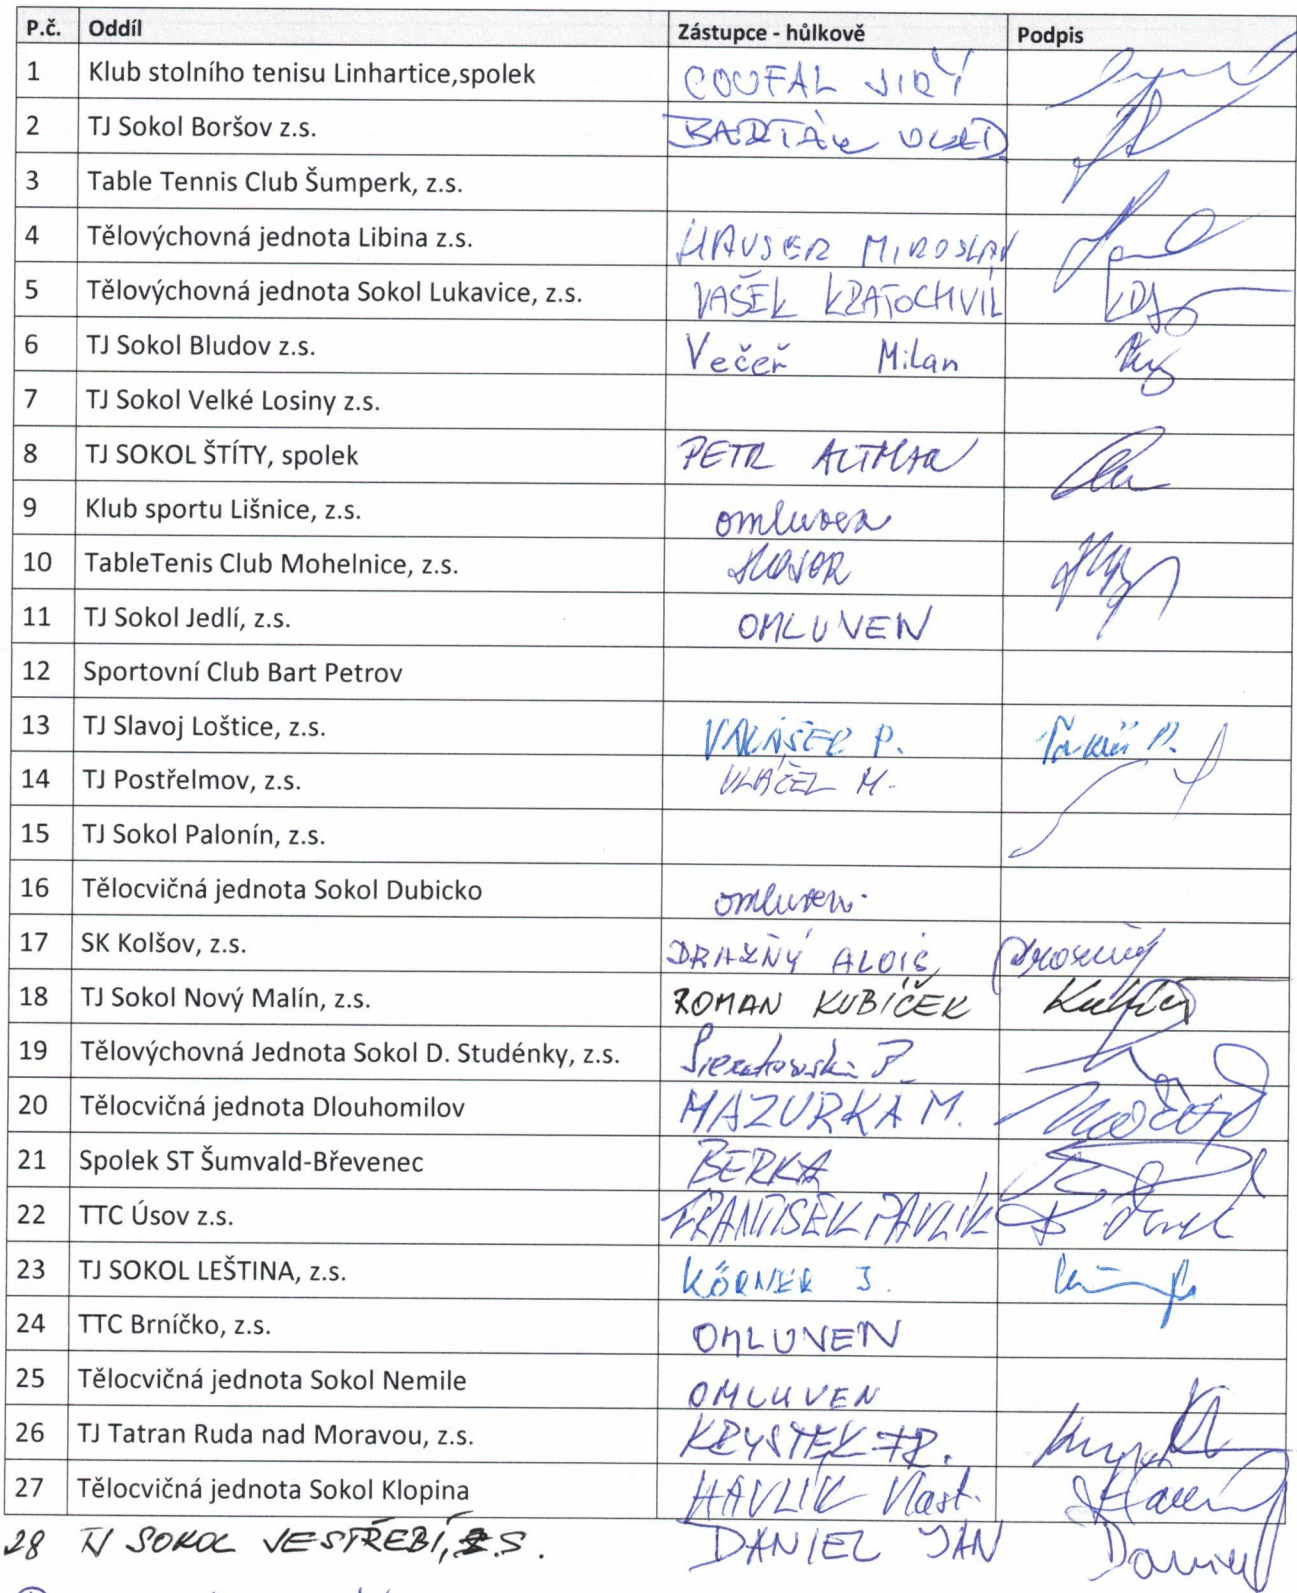 P.č. Oddíl Zástupce - hůlkově Podpis
1 Klub stolního tenisu Linhartice,spolek COUFAL JIŘÍ
2 TJ Sokol Boršov z.s. BARTÁK
3 Table Tennis Club Šumperk, z.s.
4 Tělovýchovná jednota Libina z.s. HAUSER MIROSLAV
5 Tělovýchovná jednota Sokol Lukavice, z.s. VAŠEK KRATOCHVIL
6 TJ Sokol Bludov z.s. Večeř Milan
7 TJ Sokol Velké Losiny z.s.
8 TJ SOKOL ŠTÍTY, spolek PETR ALTMAN
9 Klub sportu Lišnice, z.s. omluven
10 TableTenis Club Mohelnice, z.s.
11 TJ Sokol Jedlí, z.s. OMLUVEN
12 Sportovní Club Bart Petrov
13 TJ Slavoj Loštice, z.s. P.
14 TJ Postřelmov, z.s. M.
15 TJ Sokol Palonín, z.s.
16 Tělocvičná jednota Sokol Dubicko omluven.
17 SK Kolšov, z.s. DRAŽNÝ ALOIS
18 TJ Sokol Nový Malín, z.s. ROMAN KUBÍČEK
19 Tělovýchovná Jednota Sokol D. Studénky, z.s. P.
20 Tělocvičná jednota Dlouhomilov MAZURKA M.
21 Spolek ST Šumvald-Břevenec BERKA
22 TTC Úsov z.s. FRANTIŠEK PAVLÍK
23 TJ SOKOL LEŠTINA, z.s. KÖRNER J.
24 TTC Brníčko, z.s. OMLUVEN
25 Tělocvičná jednota Sokol Nemile OMLUVEN
26 TJ Tatran Ruda nad Moravou, z.s. KRYSTEK FR.
27 Tělocvičná jednota Sokol Klopina HAVLÍK Vlast.
28 TJ SOKOL JESTŘEBÍ, Z.S. DANIEL JAN Daniel